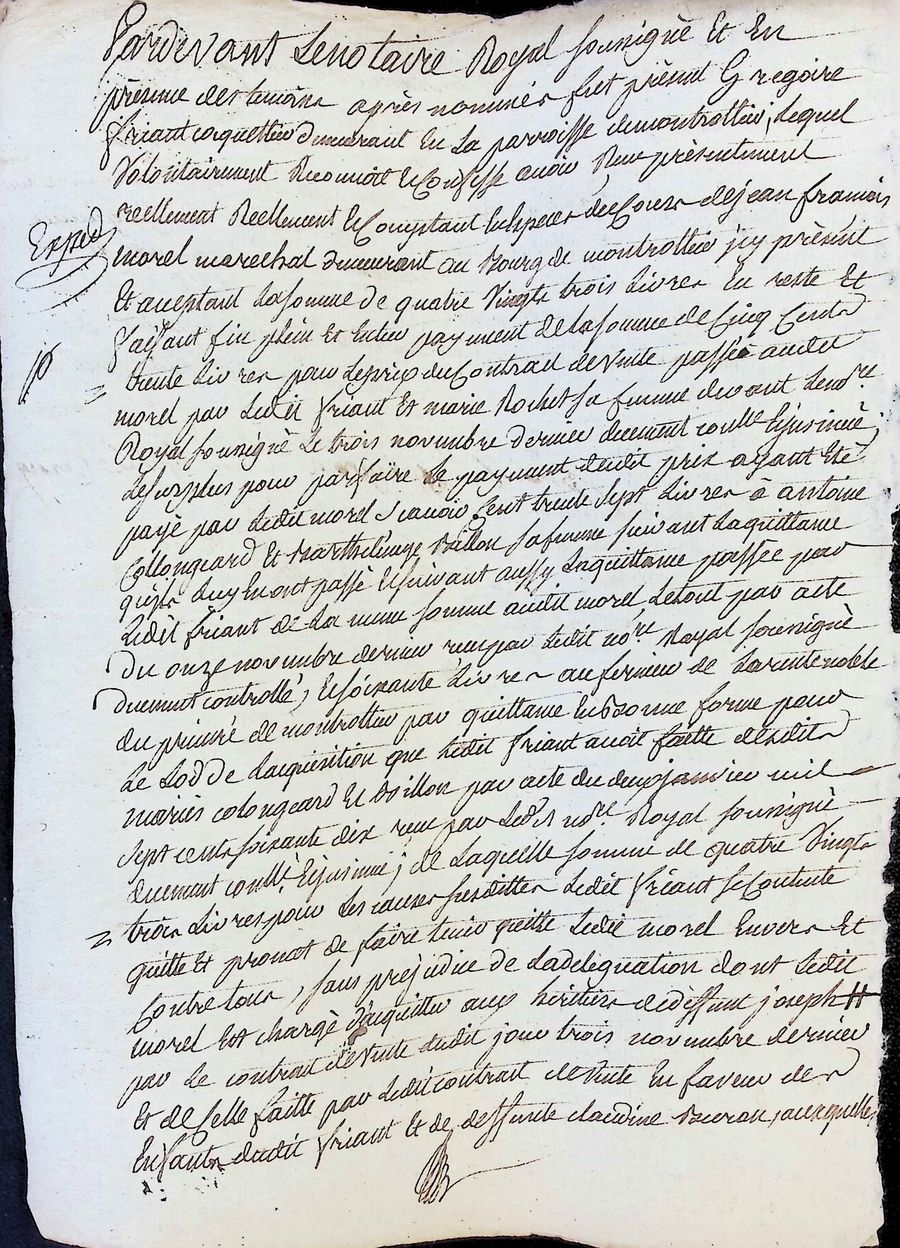 Pardevant Lenotaire Royal soussigné et en
présence des temoins après nommés fut présent Gregoire
friant coquettier demeurant en la parroisse demontrottier, Lequel
Volontairement Reconnoit et Confesse avoir Receu présentement
reellement Reellement et Comptant en especes de Cours de jean francois
Exped
morel marechal demeurant au Bourg de montrottier icy présent
Et acceptant la somme de quatre Vingts trois Livres En reste Et
faisant fin plein et entier payement de la somme de Cinq Cents
= trente Livres pour le prix du Contrat de Vente passée audit
morel par Ledit friant Et marie Rochet sa femme devant Leno.re
Royal sousigné Le trois novembre dernier duement conllé Et insinué,
Le surplus pour parfaire Le payement dudit prix ayant Eté
payé par Ledit morel Scavoir Cent trente Sept Livres à antoine
Collongeard Et Barthelemye Billon sa femme suivant La quittance
qu'ils luy En ont passé Et suivant aussy La quittance passée par
Ledit friant de La meme somme audit morel, Letout par acte
Du onze novembre dernier receu par Ledit no.re Royal soussigné
Duement controllé, Et soixante Livres au fermier de La rente noble
du prieuré de montrottier par quittance en Bonne forme pour
Le Lod de Lacquisition que Ledit friant avoit faitte desdits
mariés colongeard Et Billon par acte du deux janvier mil
Sept cent soixante dix receu par Ledit no.re Royal soussigné
duement conllé Et insinué; de Laquelle somme de quatre Vingts
= trois Livres pour Les causes susdittes Ledit friant se Contente
quitte Et promet de faire tenir quitte Ledit morel Envers Et
Contre tous, sans prejudice de La delegation dont Ledit
morel Est chargé d'acquitter aux héritiers de deffunt joseph H
par Le contrat de Vente dudit jour trois novembre dernier
Et de Celle faitte par Ledit contrat de Vente En faveur des
Enfants dudit friant Et de deffunte claudine auxquelles